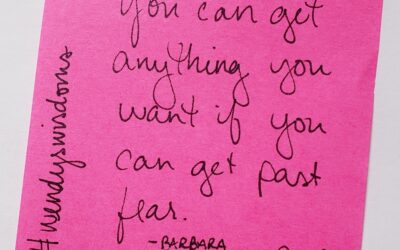 You can get
anything you
want if you
can get past
fear.
-BARBARA
#wendyswisdoms